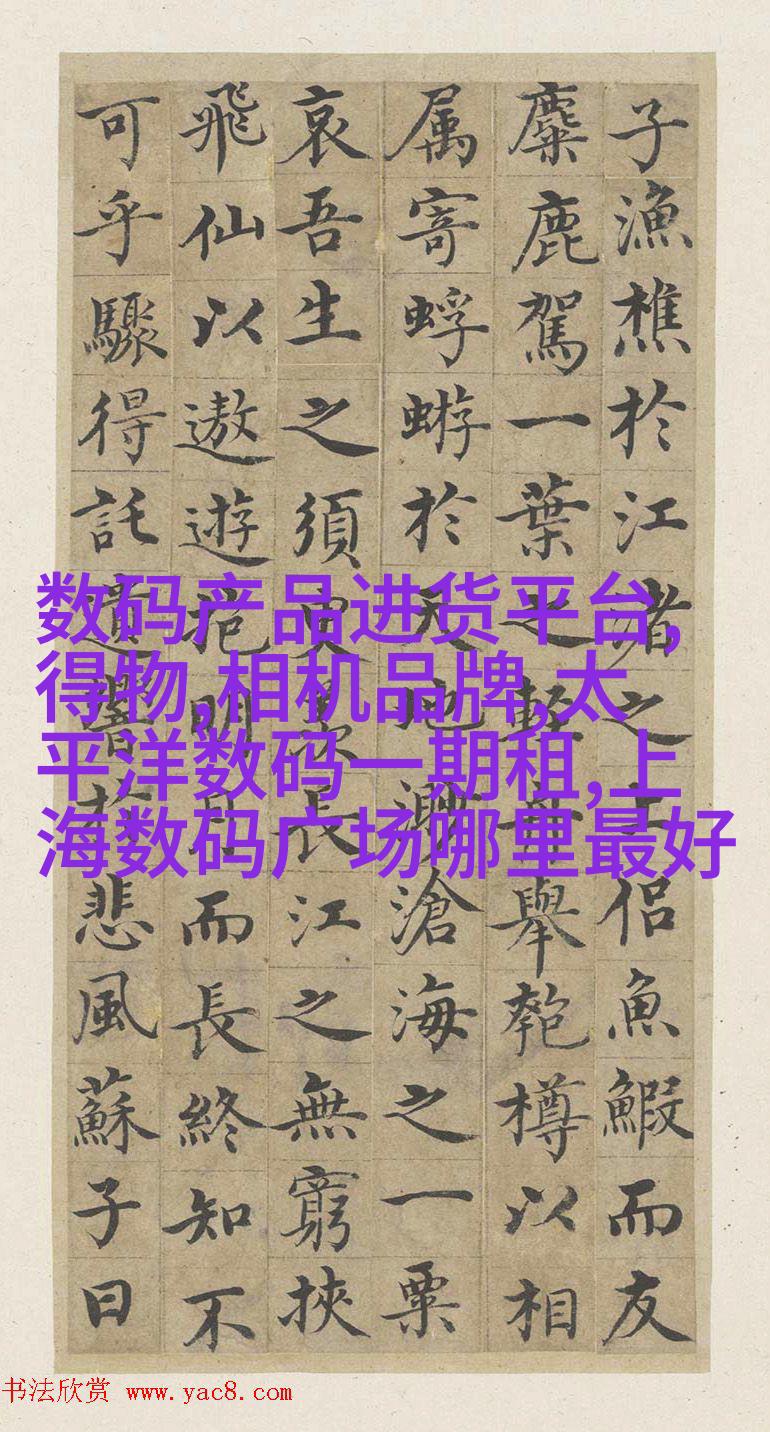 子漁樵於江渚之上侶魚鰕而友
麋鹿駕一葉之輕舟舉匏樽以相
属寄蜉蝣於天地渺滄海之一粟
哀吾生之須臾羨長江之無窮挾
飛仙以遨遊抱明月而長終知不
可乎驟得託遺響於悲風蘇子曰
数码产品进货平台,
得物,相机品牌,太
平洋数码一期租,上
海数码广场哪里最好
书法欣赏 www.yac8.com